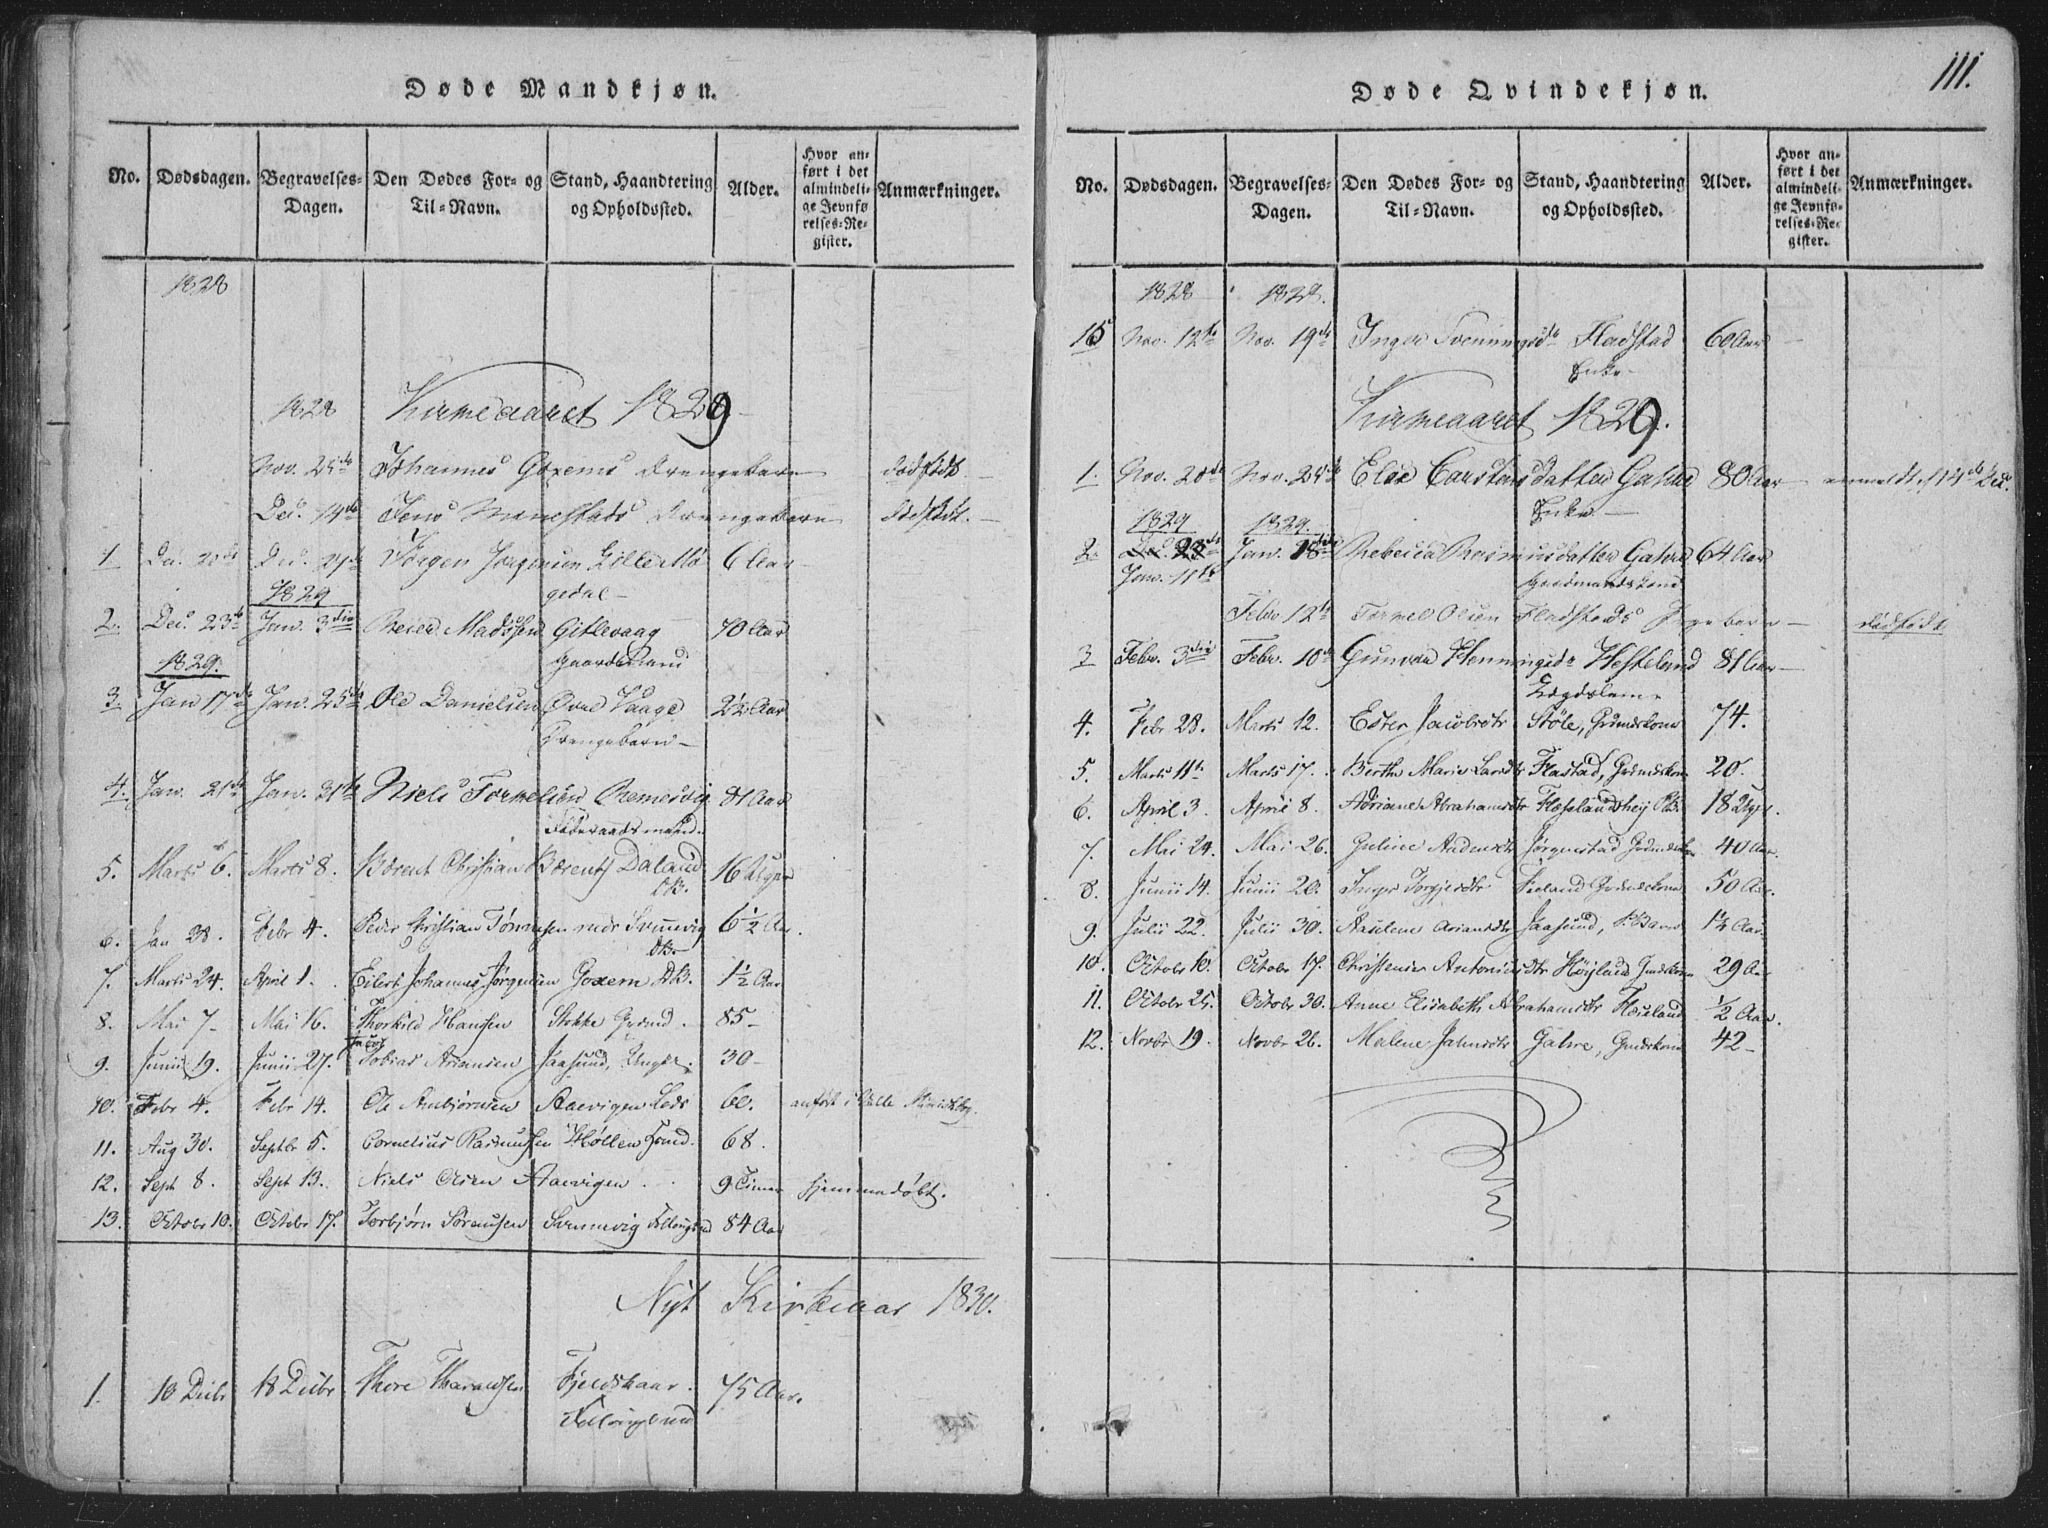 Døde Mandkjøn.
No. Dødsdagen. Begravelses-Dagen. Den Dødes For- og Til-Navn. Stand, Haandtering og Opholdssted. Alder. Hvor anført i det almindelige Jevnførelses-Register. Anmærkninger.
1828
1828 Kirkeaaret 1829
Nov. 25de Johannes Goxems Drengebarn dødfødt
Dec. 14de Jens Drengebarn dødfødt.
1 Dec. Dec. 21de Jørgen Jørgensen Gille Mø 6 Aar
1829 gedal
2. Dec. 23de Jan. 3die Reier Madssen Gitlevaag 70 Aar
1829. Gaardmand
3. Jan 17de Jan. 25de Ole Danielsen Øvre Vaage 2½ Aar
Drengebarn
4. Jan. 21de Jan. 31te Niels Tormelsen Remesvig 81 Aar
Føderaadsmand.
5. Marts 6. Marts 8. Børent Christian Børents Daland 16 Uger
DB.
6. Jan 28. Febr 4. Peder Christian Tønnesen nedr Svinevig 6½ Aar.
DB.
7. Marts 24. April 1. Eilert Johannes Jørgensen Goxem DB. 1½ Aar
8. Mai 7 Mai 16. Thorkild Hansen Stokke Grdmd. 85
9. Junii 19. Junii 27. Tobias Ariansen Jaasund, Ungk. 30
10. Febr 4. Febr 14. Ole Anbjørnsen Aaevigen Lods 60. anført i
11. Aug 30. Septbr 5. Cornelius Rasmussen Høllen 68.
12. Sept 8. Sept 13. Niels Olsen Aaevigen 9 Timer hjemmedøbt.
13. Octobr 10. Octobr 17. Torbjørn Sørensen Svinevig 84 Aar
Nyt Kirkeaar 1830.
1. 10 Decbr 18 Decbr Thore Fjeldskaar. 75 Aar.
Døde Qvindekjøn.
111.
No. Dødsdagen. Begravelses-Dagen. Den Dødes For- og Til-Navn. Stand, Haandtering og Opholdssted. Alder. Hvor anført i det almindelige Jevnførelses-Register. Anmærkninger.
1828 1828.
15 Nov. 12te Nov. 19de Inger Svenningsdr Fladstad 60 Aar
Enke
Kirkeaaret 1829.
1. Nov. 20de Nov. 25de Else Carstensdatter Gahre 80 Aar anmeldt 14de Dec.
1829 1829. Enke
2. Dec. 23de Jan. 18de Rebecca Rasmusdatter Gahre 64 Aar
Jan. 11te Gaardmandskone
Febr 12te Tormel Olsen Fladstads Pigebarn dødfødt
3 Febr. 3die Febr. 10de Gunvor Henningsdr Hesteland 81 Aar
Lægdslem
4. Febr 28. Marts 12. Ester Jacobsdtr Støle, Grdmdskone 74.
5. Marts 11te Marts 17. Berthe Marie Larsdtr Flastad, Grdmdskone 20.
6. April 3. April 8. Adriane Abrahamsdtr Hæselandshej PB. 18 Uger.
7. Mai 24. Mai 26. Guline Audensdtr Jørgenstad Grdmdskone 40 Aar.
8. Junii 14. Junii 20. Inger Torgjersdtr Grdmdskone 50 Aar.
9. Julii 22. Julii 30. Aaselene Ariansdtr Jaasund, P. Barn 1½ Aar.
10. Octobr 10. Octobr 17. Christense Antonisdtr Høyland Grdmdskone 29 Aar
11. Octobr 25. Octobr 30. Anne Elisabeth Abrahamsdtr Hæseland ½ Aar.
12. Novbr 19. Novbr 26. Malene Jahnsdtr Gahre, Grdmdskone 42